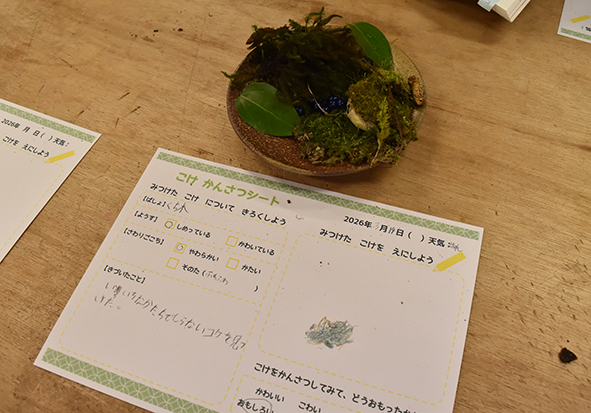 2026年 月 日( ) 天気:
こけを えにしよう
こけ かんさつシート
みつけた こけ について きろくしよう
【ばしょ】
【ようす】 しめっている かわいている
【さわりごこち】 やわらかい かたい
そのた( )
【きづいたこと】
いろいろなかたちで
コケを見つ
けた。
2026年 月 日( ) 天気
みつけた こけを えにしよう
こけをかんさつしてみて、どうおもったか
かわいい こわい
おもしろい